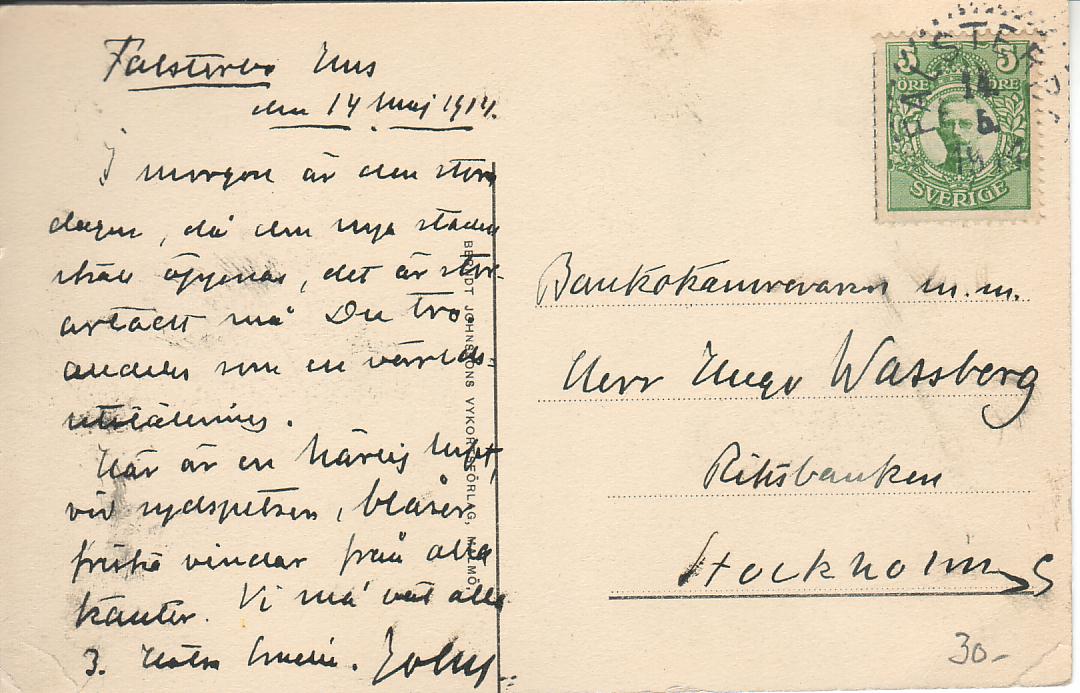 Falsterbo Hus
den 14 maj 1914.
I morgon är den stora
dagen, då den nya staden
skall öppnas, det är stor-
artadt må Du tro
alldeles som en världs-
utställning.
Här är en härlig luft,
vid sydspetsen, blåser
friska vindar från alla
kanter. Vi må väl alla
3. Hälsa John.
BERNDT JOHNSSONS VYKORTSFÖRLAG, MALMÖ.
5 5
ÖRE ÖRE
SVERIGE
FALSTERBO
14.
5.
Bankokamreraren m.m.
Herr Hugo Wassberg
Riksbanken
Stockholm
30-